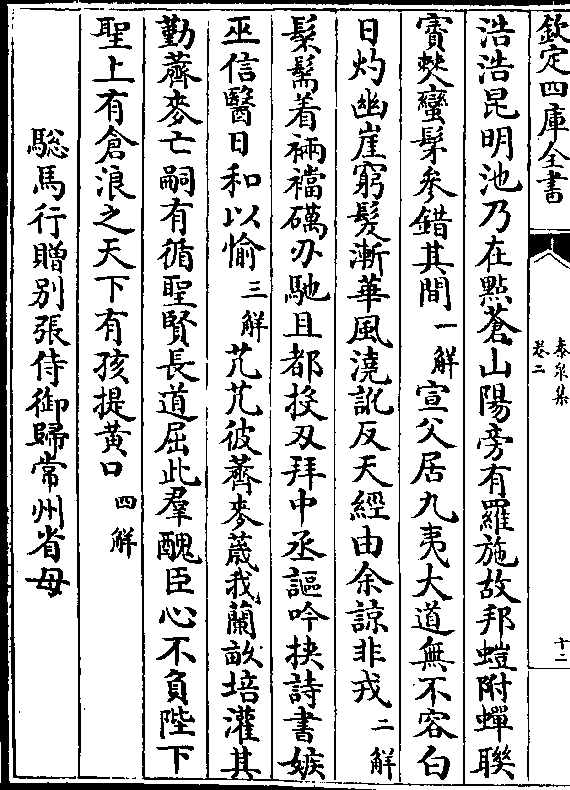 欽定四庫全書
泰泉集
卷二
十二
浩浩昆明池乃在點蒼山陽旁有羅施故邦螘附蟬聯
賨僰蠻髳參錯其間 一解 宣父居九夷大道無不容白
日灼幽崖窮髮漸華風澆訛反天經由余諒非戎 二解
髳髦着裲襠礪刃馳且都投刃拜中丞謳吟挾詩書嫉
巫信醫日和以愉 三解 芃芃彼薺麥蔵我蘭畝培灌其
勤薺麥亡嗣有循聖賢長道屈此羣醜臣心不負陛下
聖上有倉浪之天下有孩提黄口 四解
驄馬行贈别張侍御歸常州省母